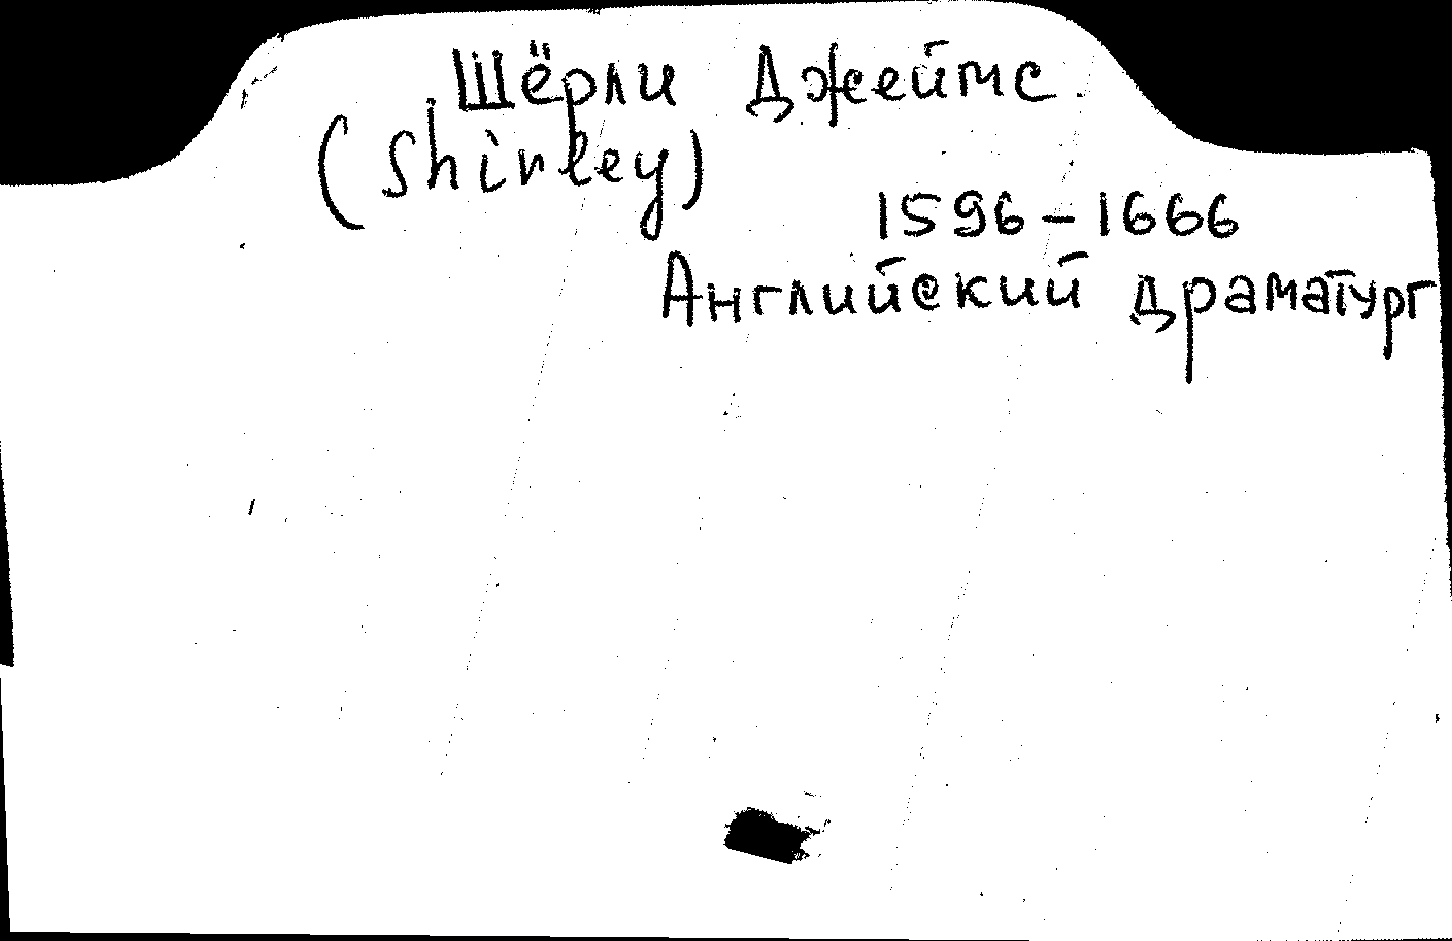 Шёрли Джеймс
(Shirley)
1596-1666
Английский драматург